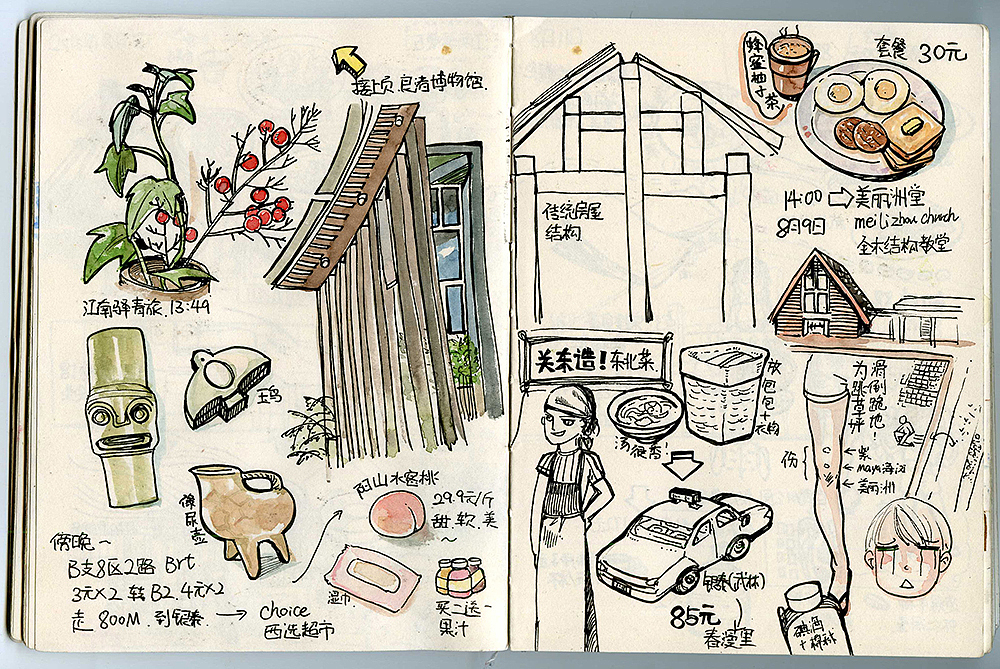 接上页 良渚博物馆.
江南驿青旅. 13:49
玉鸟
像
尿
壶
傍晚~
B支8区2路 Brt
3元×2 转B2. 4元×2
走 800M. 到银泰. → choice
西选超市
阳山水蜜桃
29.9元/斤
甜.软.美
~
湿巾.
买二送一
果汁
传统房屋
结构.
蜂蜜柚子茶
套餐 30元
14:00 → 美丽洲堂
8月9日 meilizhou church
全木结构教堂
关东造!东北菜
汤很香!
放包包+衣物
为跳草坪
滑倒跪地!
伤
紫
maya海边
美丽洲
银泰(武林)
85元
春漫里
碘酒
+棉球